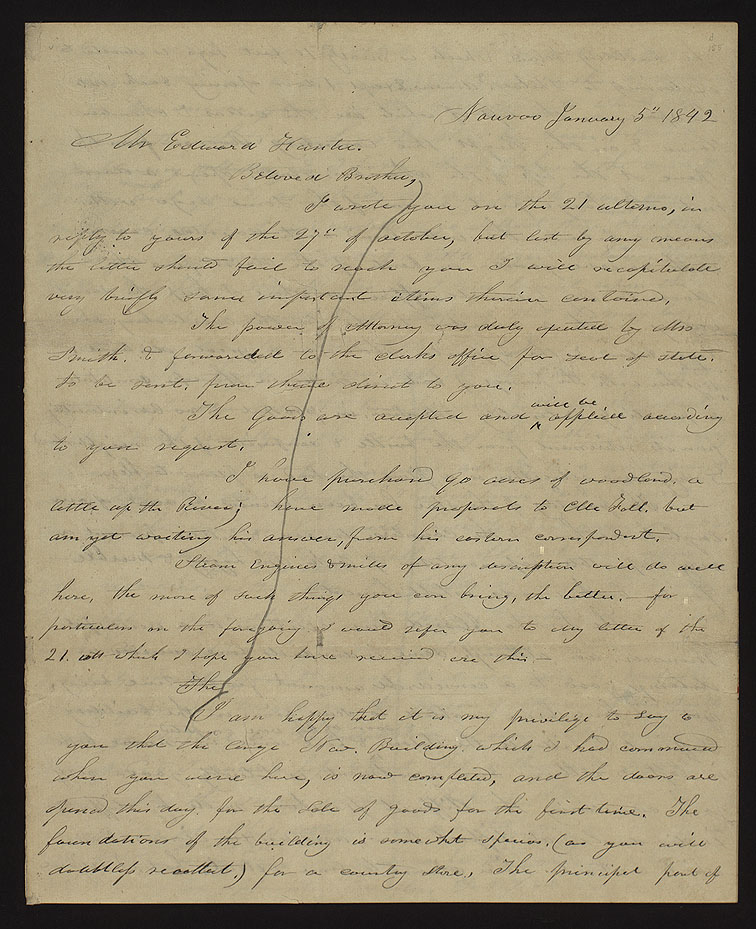 Nauvoo January 5" 1842
Mr Edward Hunter.
Beloved Brother,
I wrote you on the 21 ultimo, in
reply to yours of the 27th of october, but lest by any means
the letter should fail to reach you I will recapitulate
very briefly some important items therein contained,
The power of Attorney was duly executed by Mrs
Smith. & forwarded to the clerks office for seal of state.
to be sent, from thence direct to you.
The Goods are accepted and will be applied according
to your request.
I have purchasd 90 acres of woodland. a
little up the River; have made proposals to Mr Foll. but
am yet waiting his answer, from his eastern correspondent.
Steam Engines & mills of any description will do well
here, the more of such things you can bring, the better. — for
particulars in the foregoing I would refer you to my letter of the
21. ult which I hope you have received ere this —
The
I am happy that it is my privilige to say to
you that the large New. Building. which I had commenced
when you were here, is now completed, and the doors are
opened this day. for the sale of goods for the first time. The
foundations of the building is somewht spacios. (as you will
doubtless recollect.) for a country store. The principal part of